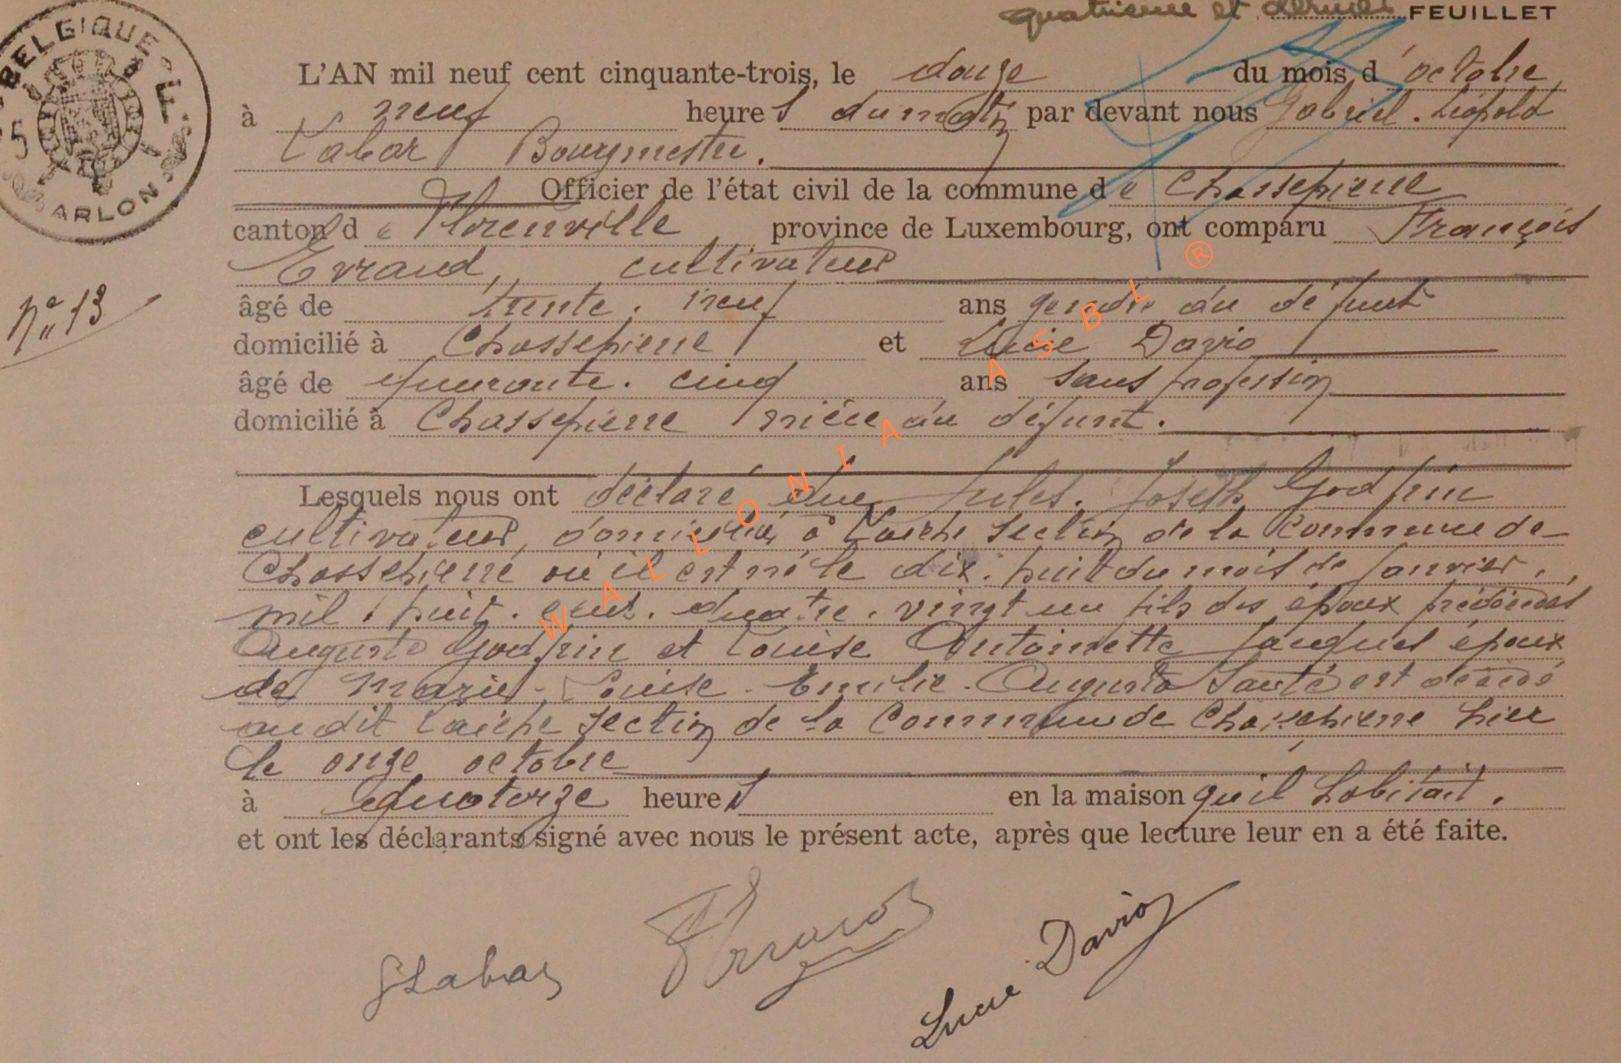 quatrième et dernier FEUILLET
BELGIQUE
5
ARLON
L'AN mil neuf cent cinquante-trois, le douze du mois d'octobre
à neuf heures du matin par devant nous Gabriel. Léopold
Labar Bourgmestre.
Officier de l'état civil de la commune de Chassepierre
canton de Florenville province de Luxembourg, ont comparu François
Evrard, cultivateur
nº 13
âgé de trente. neuf ans gendre du défunt
domicilié à Chassepierre et Lucie Davio
âgé de quarante. cinq ans sans profession
domicilié à Chassepierre nièce du défunt.
Lesquels nous ont déclaré que Jules. Joseph Godfrin
cultivateur, domicilié à Laiche section de la Commune de
Chassepierre où il est né le dix. huit du mois de janvier.
mil. huit. cent. quatre. vingt un fils des époux prédécédés
Auguste Godfrin et Louise Antoinette Jacques époux
de Marie. Louise. Emilie. Augusta Santé est décédé
au dit Laiche section de la Commune de Chassepierre hier
le onze octobre
à quatorze heures en la maison qu'il habitait.
et ont les déclarants signé avec nous le présent acte, après que lecture leur en a été faite.
GLabar
FEvrard
Lucie Davio
WALLONIA ASBL ®